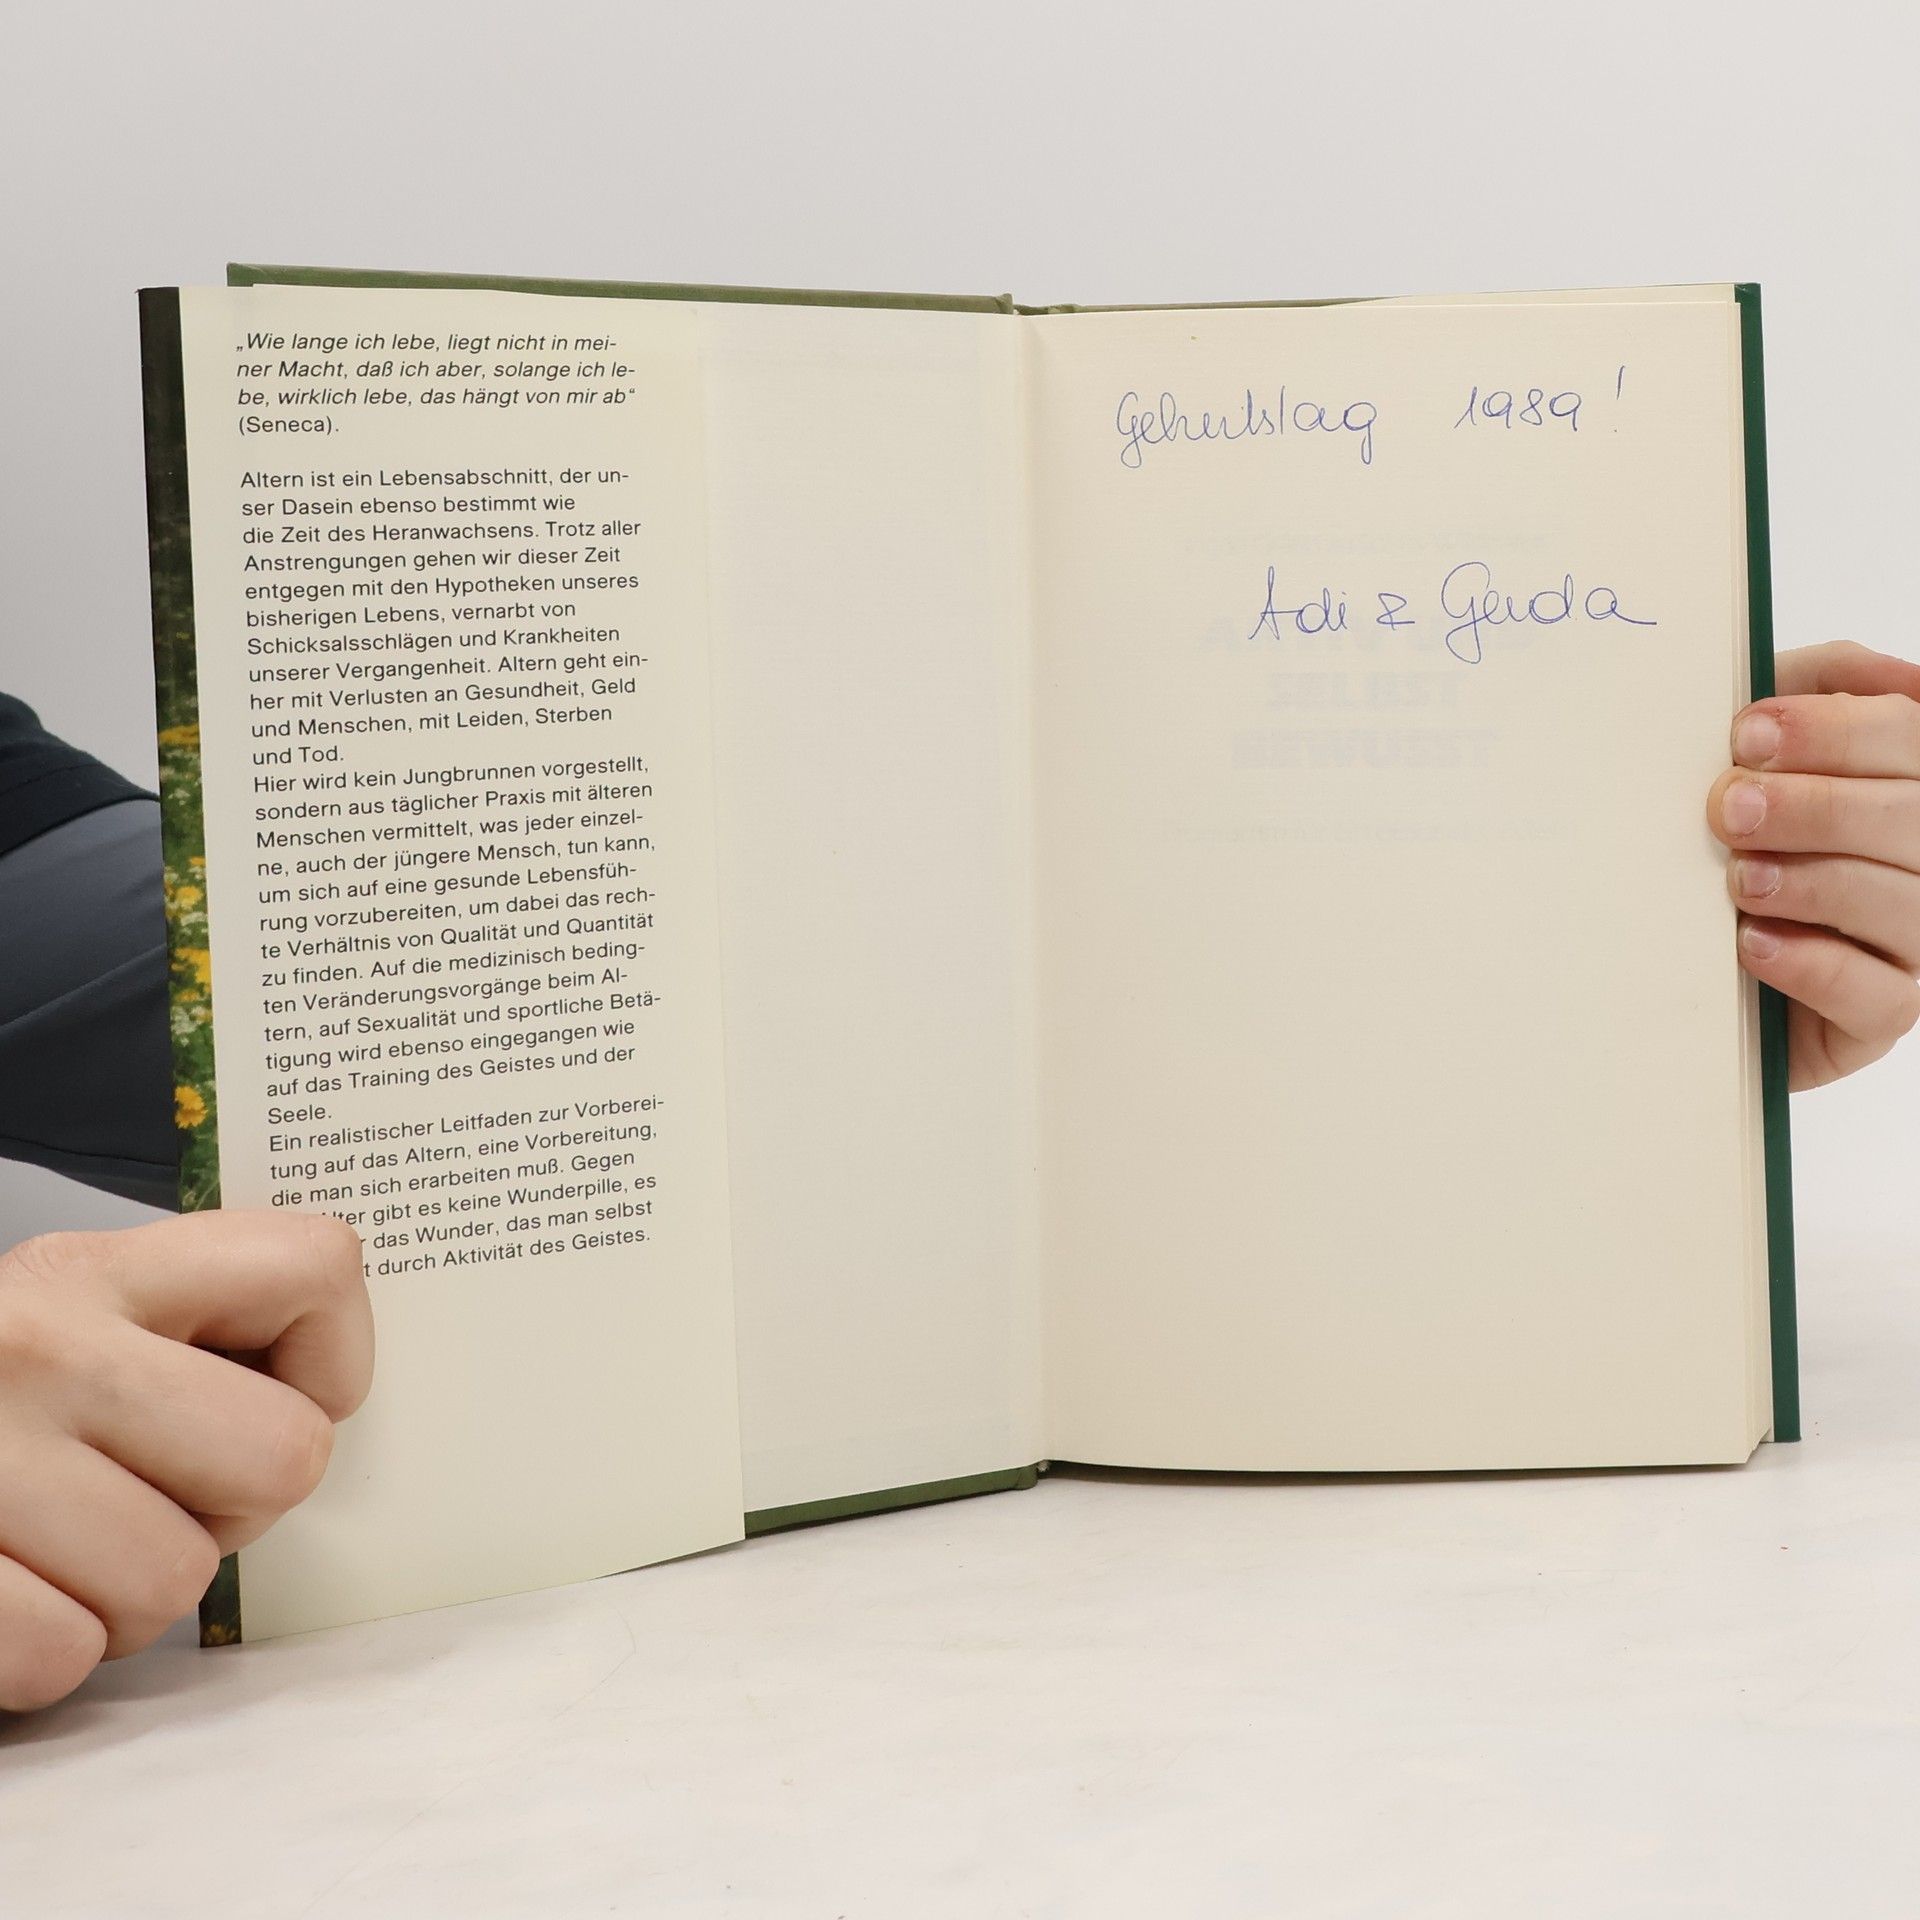 „Wie lange ich lebe, liegt nicht in mei-
ner Macht, daß ich aber, solange ich le-
be, wirklich lebe, das hängt von mir ab“
(Seneca).
Altern ist ein Lebensabschnitt, der un-
ser Dasein ebenso bestimmt wie
die Zeit des Heranwachsens. Trotz aller
Anstrengungen gehen wir dieser Zeit
entgegen mit den Hypotheken unseres
bisherigen Lebens, vernarbt von
Schicksalsschlägen und Krankheiten
unserer Vergangenheit. Altern geht ein-
her mit Verlusten an Gesundheit, Geld
und Menschen, mit Leiden, Sterben
und Tod.
Hier wird kein Jungbrunnen vorgestellt,
sondern aus täglicher Praxis mit älteren
Menschen vermittelt, was jeder einzel-
ne, auch der jüngere Mensch, tun kann,
um sich auf eine gesunde Lebensfüh-
rung vorzubereiten, um dabei das rech-
te Verhältnis von Qualität und Quantität
zu finden. Auf die medizinisch beding-
ten Veränderungsvorgänge beim Al-
tern, auf Sexualität und sportliche Betä-
tigung wird ebenso eingegangen wie
auf das Training des Geistes und der
Seele.
Ein realistischer Leitfaden zur Vorberei-
tung auf das Altern, eine Vorbereitung,
die man sich erarbeiten muß. Gegen
gibt es keine Wunderpille, es
das Wunder, das man selbst
durch Aktivität des Geistes.
Geburtstag 1989!
Adi & Gerda
SELBST
BEWUSST